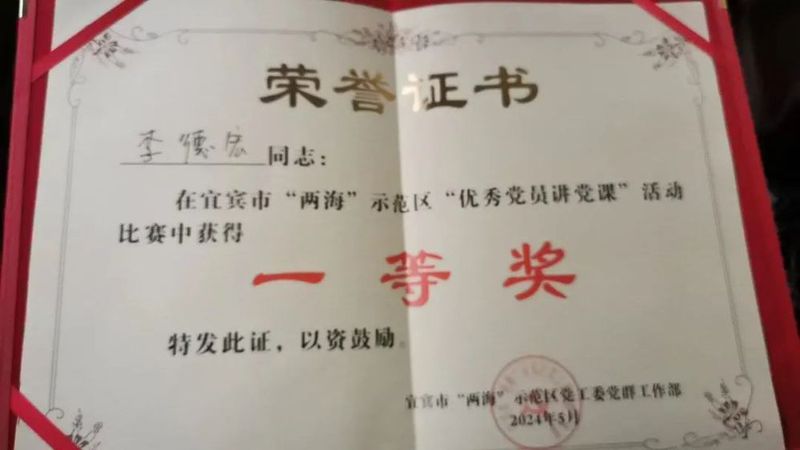 荣誉证书
李德宏同志：
在宜宾市“两海”示范区“优秀党员讲党课”活动
比赛中获得
一等奖
特发此证，以资鼓励。
宜宾市“两海”示范区党工委党群工作部
2024年5月